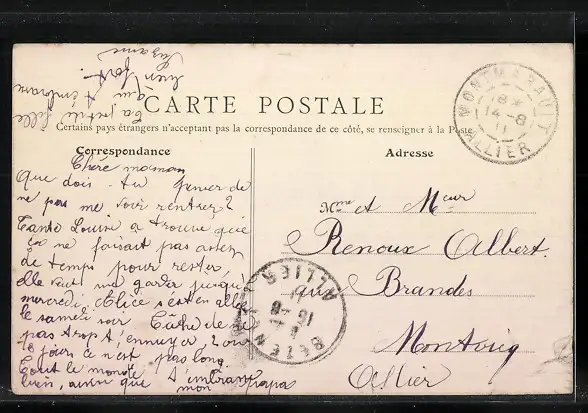 CARTE POSTALE
Certains pays étrangers n'acceptant pas la correspondance de ce côté, se renseigner à la Poste
Correspondance
Adresse
Chère maman
Que dois-tu penser de
ne pas me voir rentrer?
Tante Louise a trouvé que
ça ne faisait pas assez
de temps pour rester,
elle veut me garder jusqu'à
mercredi. Alice s'est en allée
le samedi soir. Tâche de ne
pas trop t'ennuyer. Pour
jours ce n'est pas long.
tout le monde
bien, ainsi que
mon papa
Ta petite fille
qui t'embrasse
bien fort.
Suzanne
Mme et Mr
Renoux Albert.
aux Brandes
Montvicq
Allier
MONTMARAULT
18
14-8
11
ALLIER
BEZENET
16-8
11
ALLIER